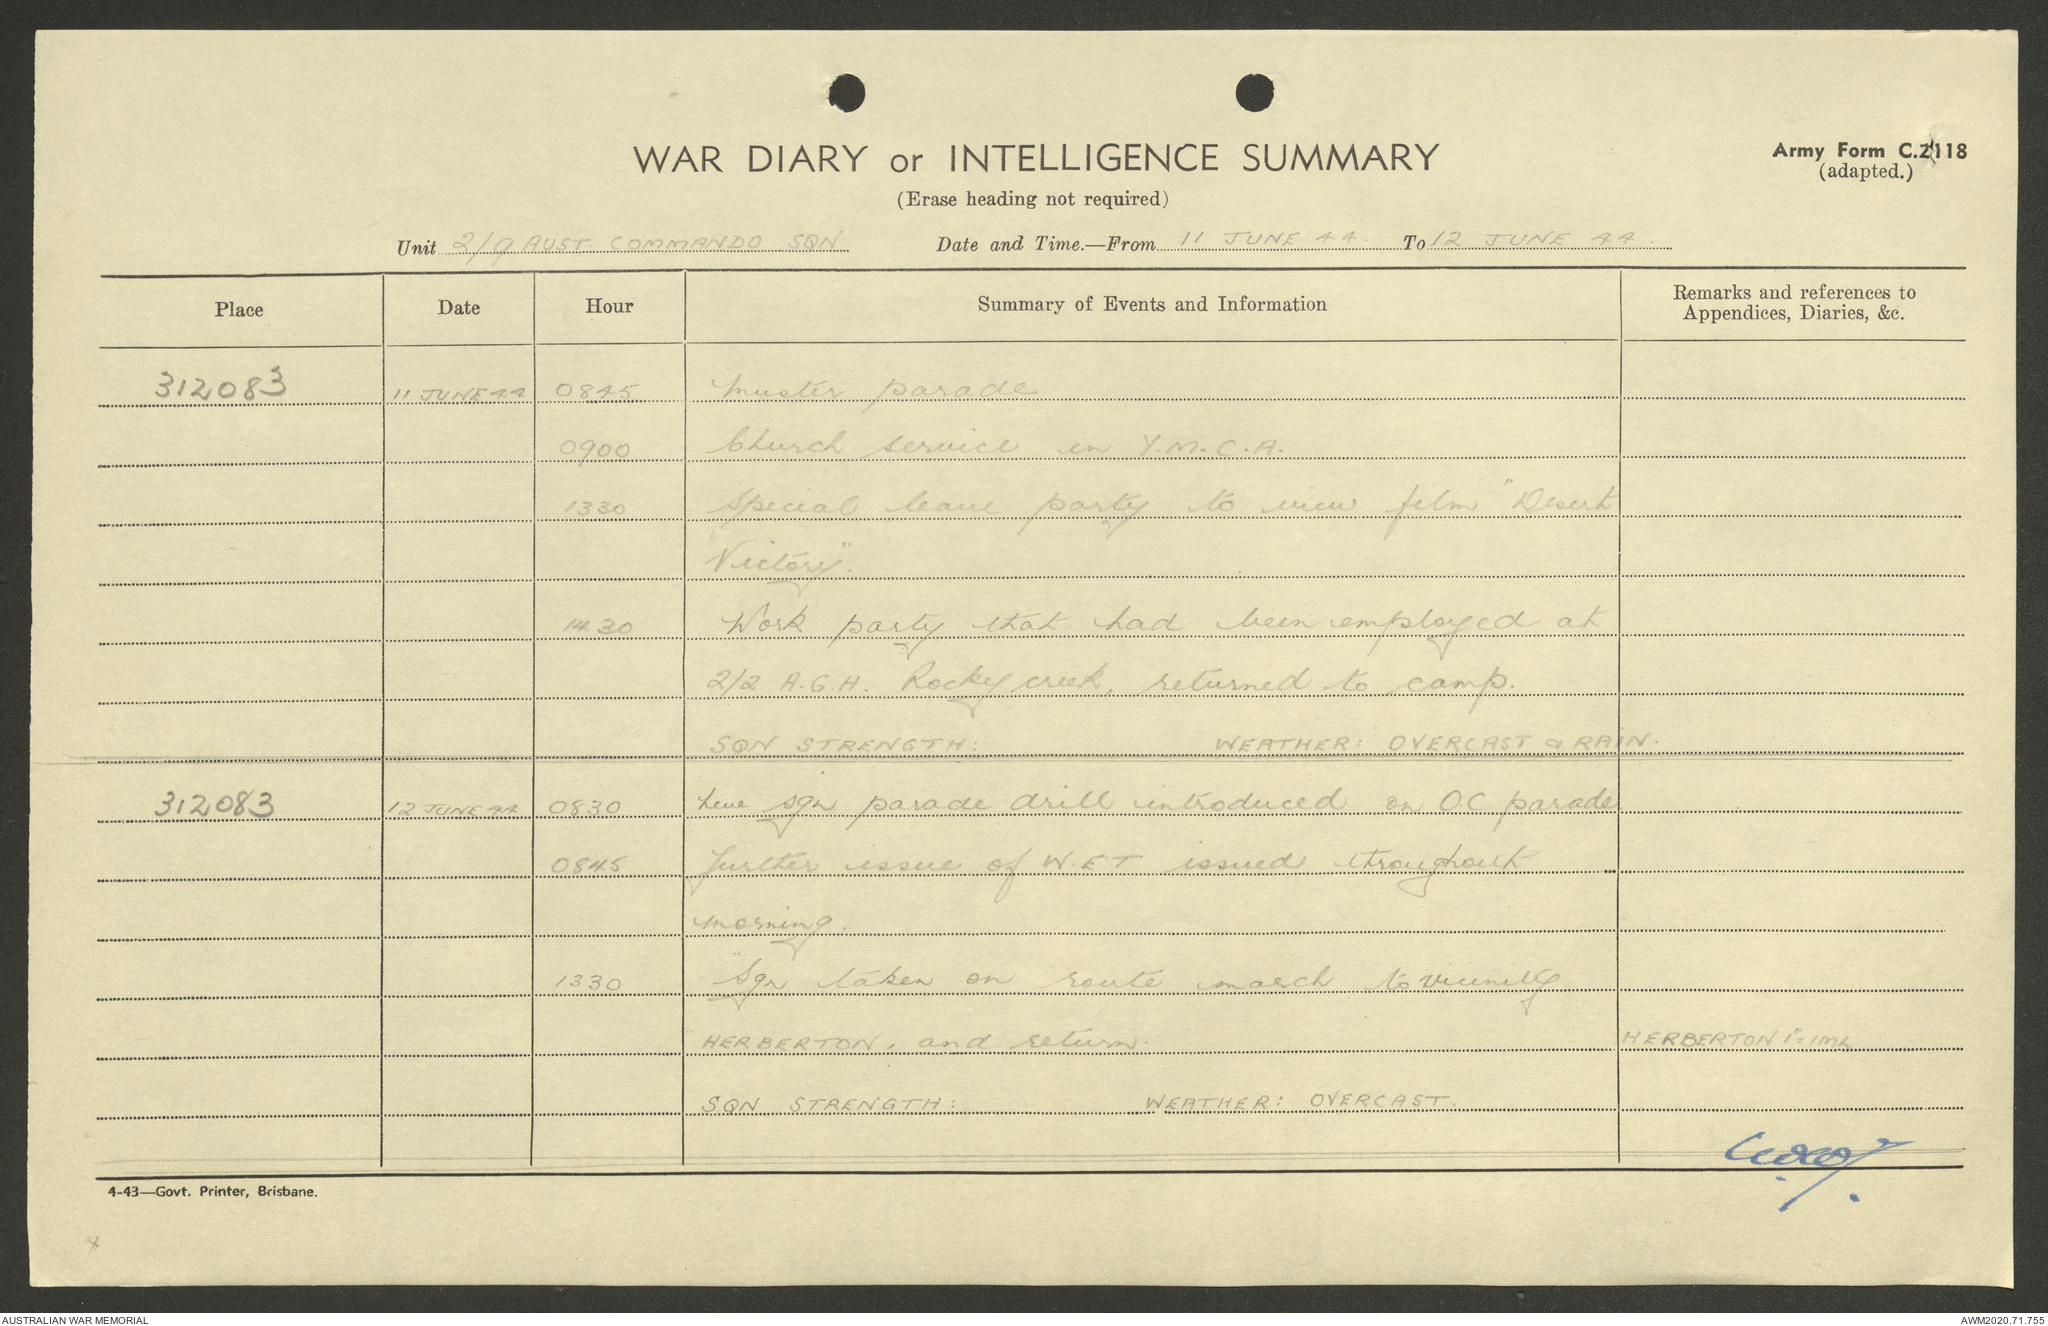 WAR DIARY or INTELLIGENCE SUMMARY
Army Form C.2118
(adapted.)
(Erase heading not required)
Unit 2/9 AUST. COMMANDO SQN Date and Time.—From 11 JUNE 44. To 12 JUNE 44.
Place Date Hour Summary of Events and Information Remarks and references to
Appendices, Diaries, &c.
312083 11 JUNE 44 0845 Muster parade
0900 Church service in Y.M.C.A.
1330 Special leave party to view film "Desert
Victory".
1430 Work party that had been employed at
2/2 A.G.H. Rocky creek, returned to camp.
SQN STRENGTH: WEATHER: OVERCAST & RAIN.
312083 12 JUNE 44 0830 New sqn parade drill introduced on O.C parade
0845 Further issue of W.E.T issued throughout
morning.
1330 Sqn taken on route march to vicinity
HERBERTON, and return. HERBERTON 1"=1ML
SQN STRENGTH: WEATHER: OVERCAST.
4-43—Govt. Printer, Brisbane.
AUSTRALIAN WAR MEMORIAL
AWM2020.71.755